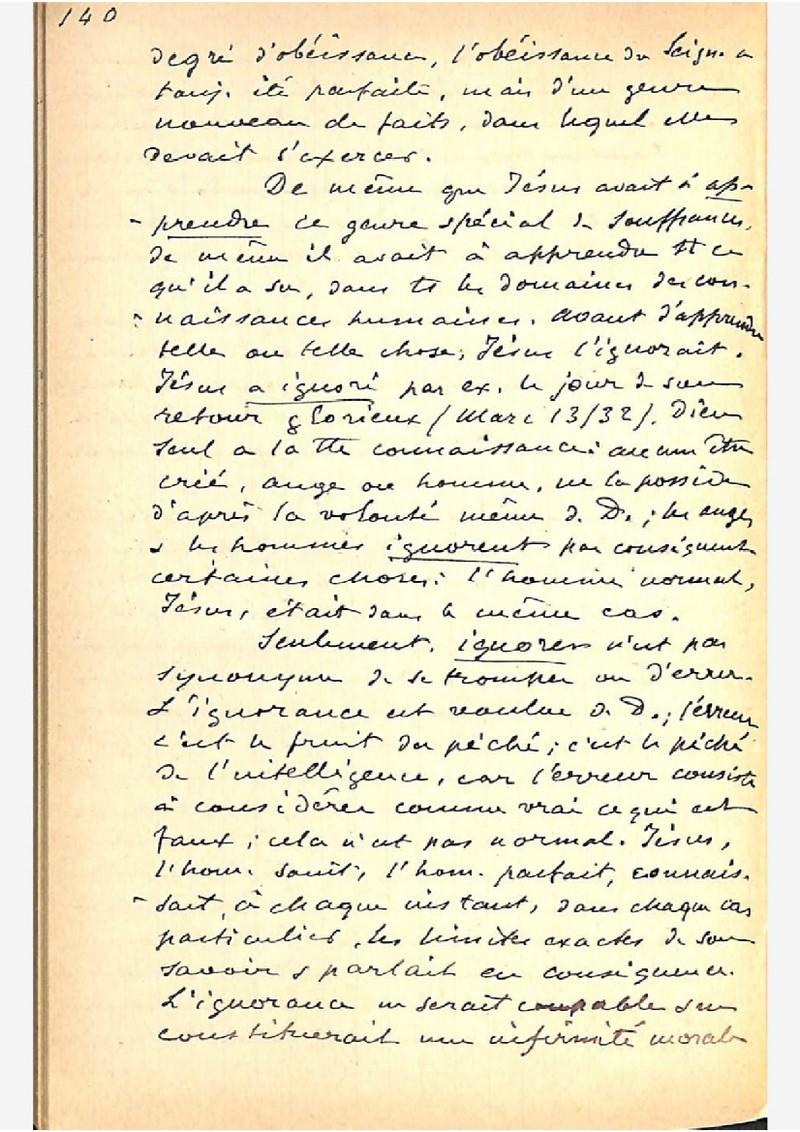 140
degré d'obéissance, l'obéissance du Seign. a
touj. été parfaite, mais d'un genre
nouveau de faits, dans lequel elle
devait s'exercer.
De même que Jésus avait à ap-
- prendre ce genre spécial de souffrances,
de même il avait à apprendre tt ce
qu'il a su, dans ts les domaines des con-
- naissances humaines. Avant d'apprendre
telle ou telle chose, Jésus l'ignorait.
Jésus a ignoré par ex. le jour de son
retour glorieux (Marc 13/32). Dieu
seul a la tte connaissance: aucun être
créé, ange ou homme, ne la possède
d'après la volonté même d. D.; les anges
& les hommes ignorent par conséquent
certaines choses: l'homme normal,
Jésus, était dans le même cas.
Seulement, ignorer n'est pas
synonyme de se tromper ou d'errer.
L'ignorance est voulue d. D.; l'erreur
c'est le fruit du péché; c'est le péché
de l'intelligence, car l'erreur consiste
à considérer comme vrai ce qui est
faux; cela n'est pas normal. Jésus,
l'hom. saint, l'hom. parfait, connais-
- sait, à chaque instant, dans chaque cas
particulier, les limites exactes de son
savoir & parlait en conséquence.
L'ignorance ne serait coupable &
constituerait une infirmité morale